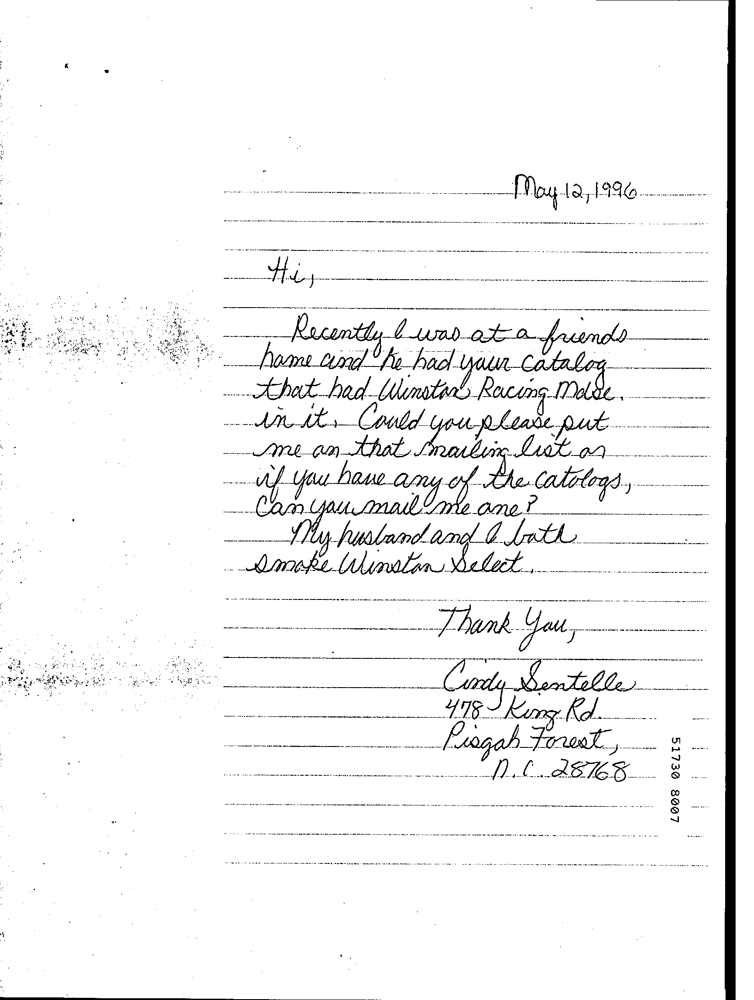 May 12, 1996
Hi,
Recently I was at a friends
home and he had your catalog
that had Winston Racing Mdse.
in it. Could you please put
me on that mailing list or
if you have any of the catologs,
Can you mail me one?
My husband and I both
smoke Winston Select.
Thank You,
Cindy Sentelle
478 King Rd.
Pisgah Forest,
N.C. 28768
51730 8007